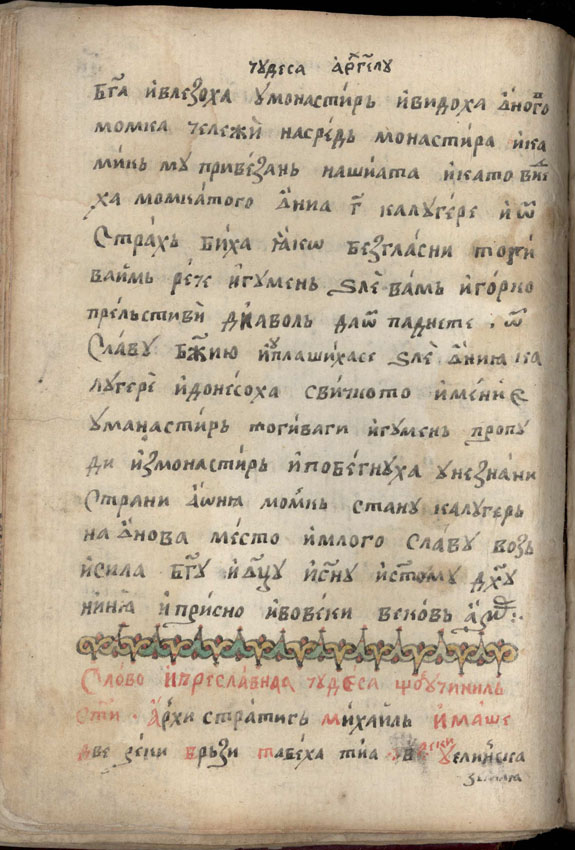 чꙋдеса а҆рг҃гелꙋ
бг҃а и҆влезоха ꙋмонастирь и҆видоха ѻ҆ного
момка чележи насредь монастира и҆ка
микь мꙋ привезань нашиꙗта и҆като виде
ха момкатого ѻ҆ниа г҃ калꙋгере и҆ ѿ
страхь биха ꙗ҆ко безгласни тоги
ваимь рече и҆гꙋмень ѕле вамь и҆горко
прельстиви диꙗволь даѿ паднете · ѿ
славꙋ бж҃ию и҆ꙋплашихасе ѕле ѻ҆ниꙗ ка
лꙋгере и҆донесоха свичкото и҆мение
ꙋманастирь тогиваги и҆гꙋмень пропꙋ
ди и҆змонастирь и҆побегнꙋха ꙋнезнани
страни а҆ѡниꙗ момкь станꙋ калꙋгерь
на ѻ҆нова место и҆млого славꙋ возь
и҆сила бг҃ꙋ и҆ ѻ҆ц҃ꙋ и҆сн҃ꙋ и҆ст҃омꙋ дх҃ꙋ
нинꙗ и҆присно и҆вовеки вековь а҆ми҃:·
слово и҆преславнаа чꙋдеса що ꙋчиниль
ст҃и · а҆рхистратигь михаиль и҆маше
две реки брьзи та беха тиа · реки ꙋелинска
земла